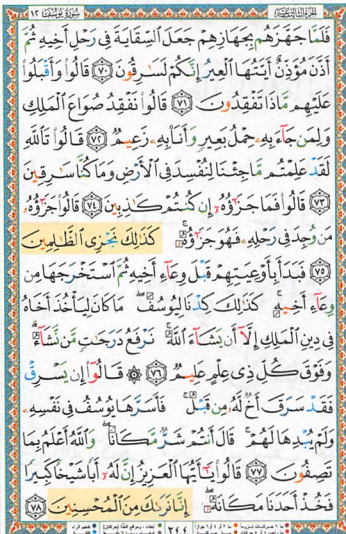 سورة يوسف ١٢
فَلَمَّا جَهَّزَهُم بِجَهَازِهِمْ جَعَلَ السِّقَايَةَ فِي رَحْلِ أَخِيهِ ثُمَّ
أَذَّنَ مُؤَذِّنٌ أَيَّتُهَا الْعِيرُ إِنَّكُمْ لَسَارِقُونَ ٧٠ قَالُوا وَأَقْبَلُوا
عَلَيْهِم مَّاذَا تَفْقِدُونَ ٧١ قَالُوا نَفْقِدُ صُوَاعَ الْمَلِكِ
وَلِمَن جَاءَ بِهِ حِمْلُ بَعِيرٍ وَأَنَا بِهِ زَعِيمٌ ٧٢ قَالُوا تَاللَّهِ
لَقَدْ عَلِمْتُم مَّا جِئْنَا لِنُفْسِدَ فِي الْأَرْضِ وَمَا كُنَّا سَارِقِينَ
٧٣ قَالُوا فَمَا جَزَاؤُهُ إِن كُنتُمْ كَاذِبِينَ ٧٤ قَالُوا جَزَاؤُهُ
مَن وُجِدَ فِي رَحْلِهِ فَهُوَ جَزَاؤُهُ كَذَٰلِكَ نَجْزِي الظَّالِمِينَ
٧٥ فَبَدَأَ بِأَوْعِيَتِهِمْ قَبْلَ وِعَاءِ أَخِيهِ ثُمَّ اسْتَخْرَجَهَا مِن
وِعَاءِ أَخِيهِ كَذَٰلِكَ كِدْنَا لِيُوسُفَ مَا كَانَ لِيَأْخُذَ أَخَاهُ
فِي دِينِ الْمَلِكِ إِلَّا أَن يَشَاءَ اللَّهُ نَرْفَعُ دَرَجَاتٍ مَّن نَّشَاءُ
وَفَوْقَ كُلِّ ذِي عِلْمٍ عَلِيمٌ ٧٦ ۞ قَالُوا إِن يَسْرِقْ
فَقَدْ سَرَقَ أَخٌ لَّهُ مِن قَبْلُ فَأَسَرَّهَا يُوسُفُ فِي نَفْسِهِ
وَلَمْ يُبْدِهَا لَهُمْ قَالَ أَنتُمْ شَرٌّ مَّكَانًا وَاللَّهُ أَعْلَمُ بِمَا
تَصِفُونَ ٧٧ قَالُوا يَا أَيُّهَا الْعَزِيزُ إِنَّ لَهُ أَبًا شَيْخًا كَبِيرًا
فَخُذْ أَحَدَنَا مَكَانَهُ إِنَّا نَرَاكَ مِنَ الْمُحْسِنِينَ ٧٨
٢٤٤